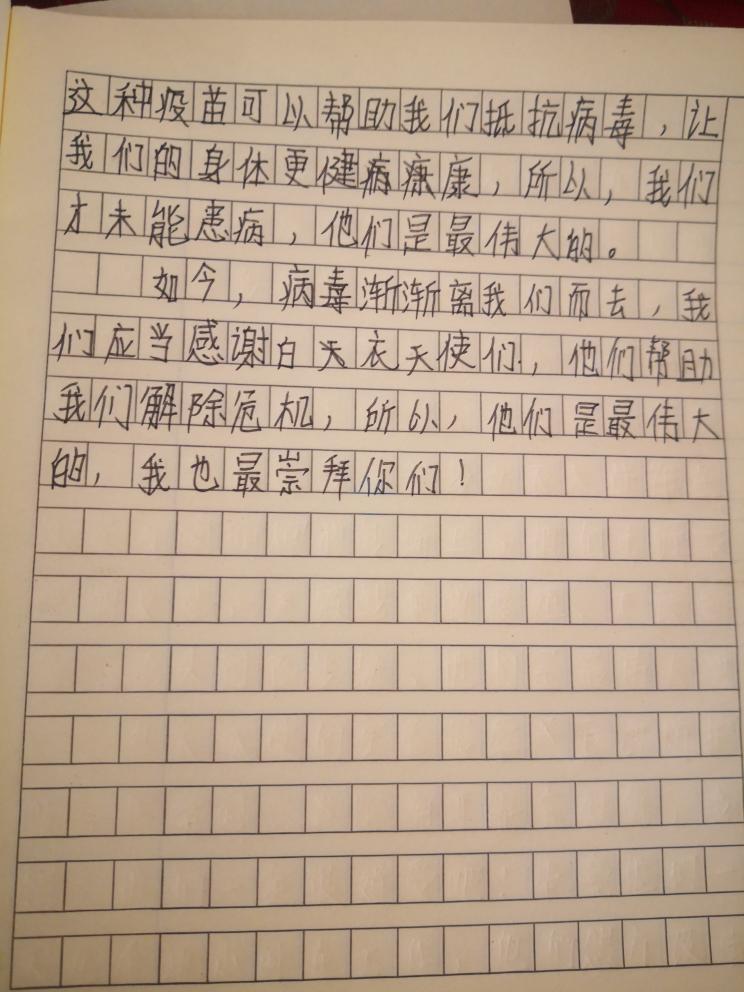 这种疫苗可以帮助我们抵抗病毒，让
我们的身体更健康，所以，我们
才未能患病，他们是最伟大的。
如今，病毒渐渐离我们而去，我
们应当感谢白衣天使们，他们帮助
我们解除危机，所以，他们是最伟大
的，我也最崇拜你们！